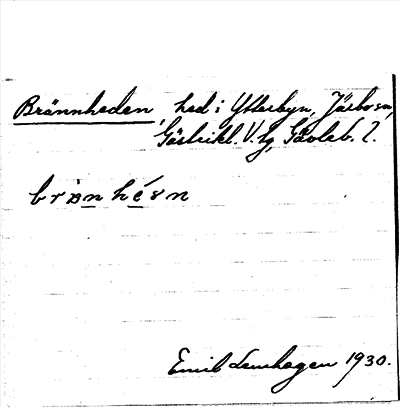 Brännheden, hed i Ytterbyn, Järbo sn,
Gästrikl. V. hg, Gävleb. l.
brän hé𝑒n
Emil Lenhagen 1930.